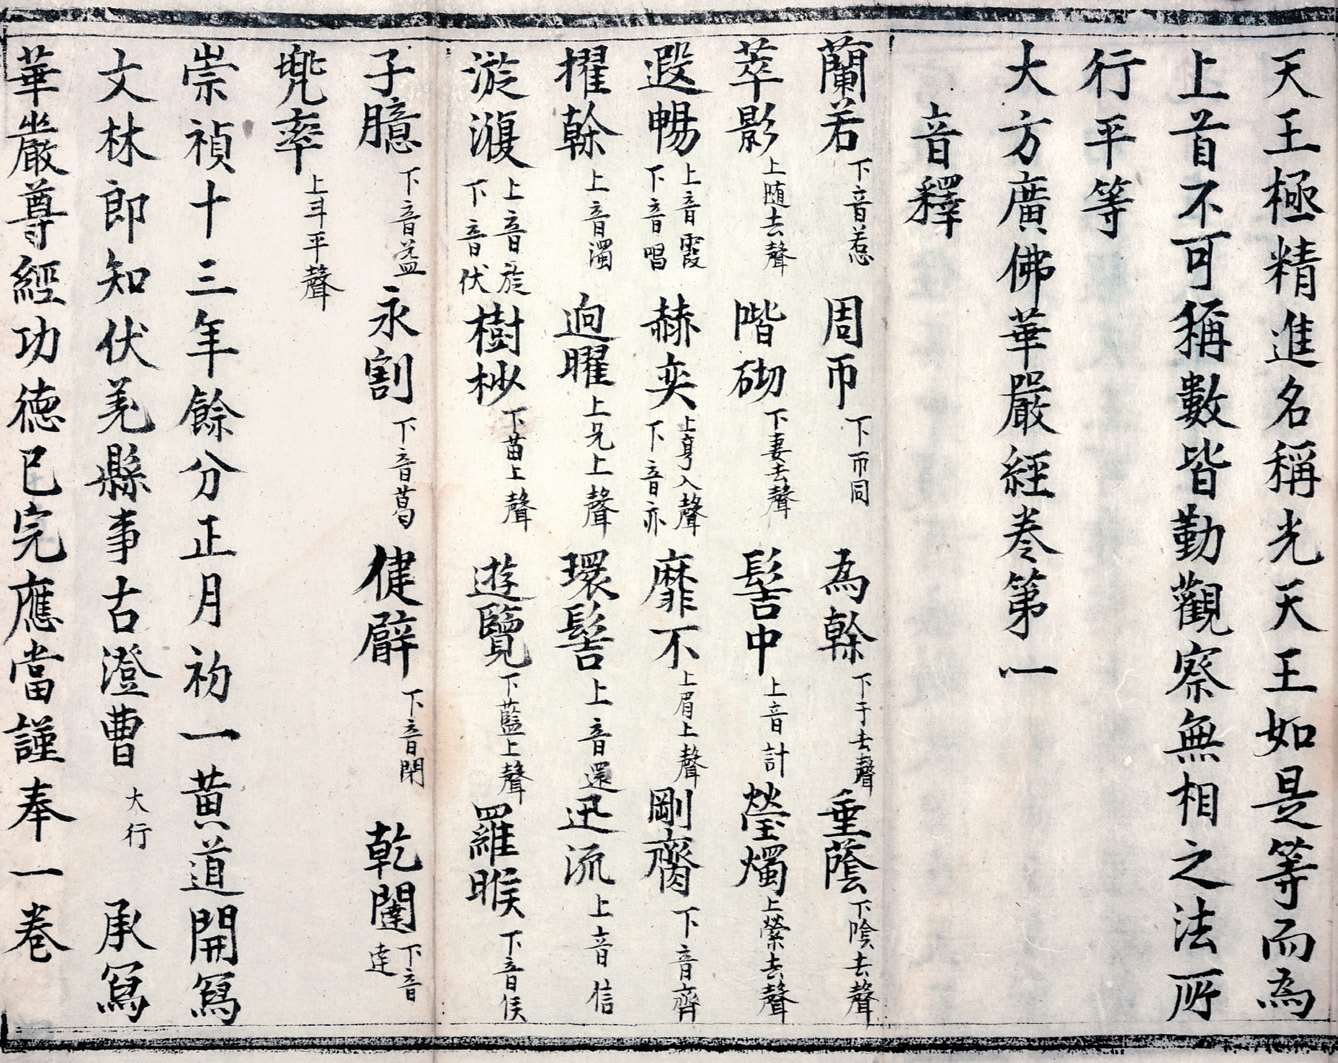 天王極精進名稱光天王如是等而為
上首不可稱數皆勤觀察無相之法所
行平等
大方廣佛華嚴經卷第一
音釋
蘭若下音惹 周帀下帀同 為榦下干去聲 垂蔭下陰去聲
萃影上随去聲 階砌下妻去聲 髻中上音計 瑩燭上縈去聲
遐暢上音霞下音唱 赫奕上亨入聲下音亦 靡不上眉上聲 剛齋下音齊
擢榦上音濁 逈曜上兄上聲 環髻上音還 迅流上音信
漩澓上音旋下音伏 樹杪下苗上聲 遊覽下藍上聲 羅睺下音侯
子臆下音益 永割下音葛 健闢下音闭 乾闥下音達
兠率上斗平聲
崇禎十三年餘分正月初一黄道開寫
文林郎知伏羌縣事古澄曹 大行 承寫
華嚴尊經功德已完應當謹奉一卷